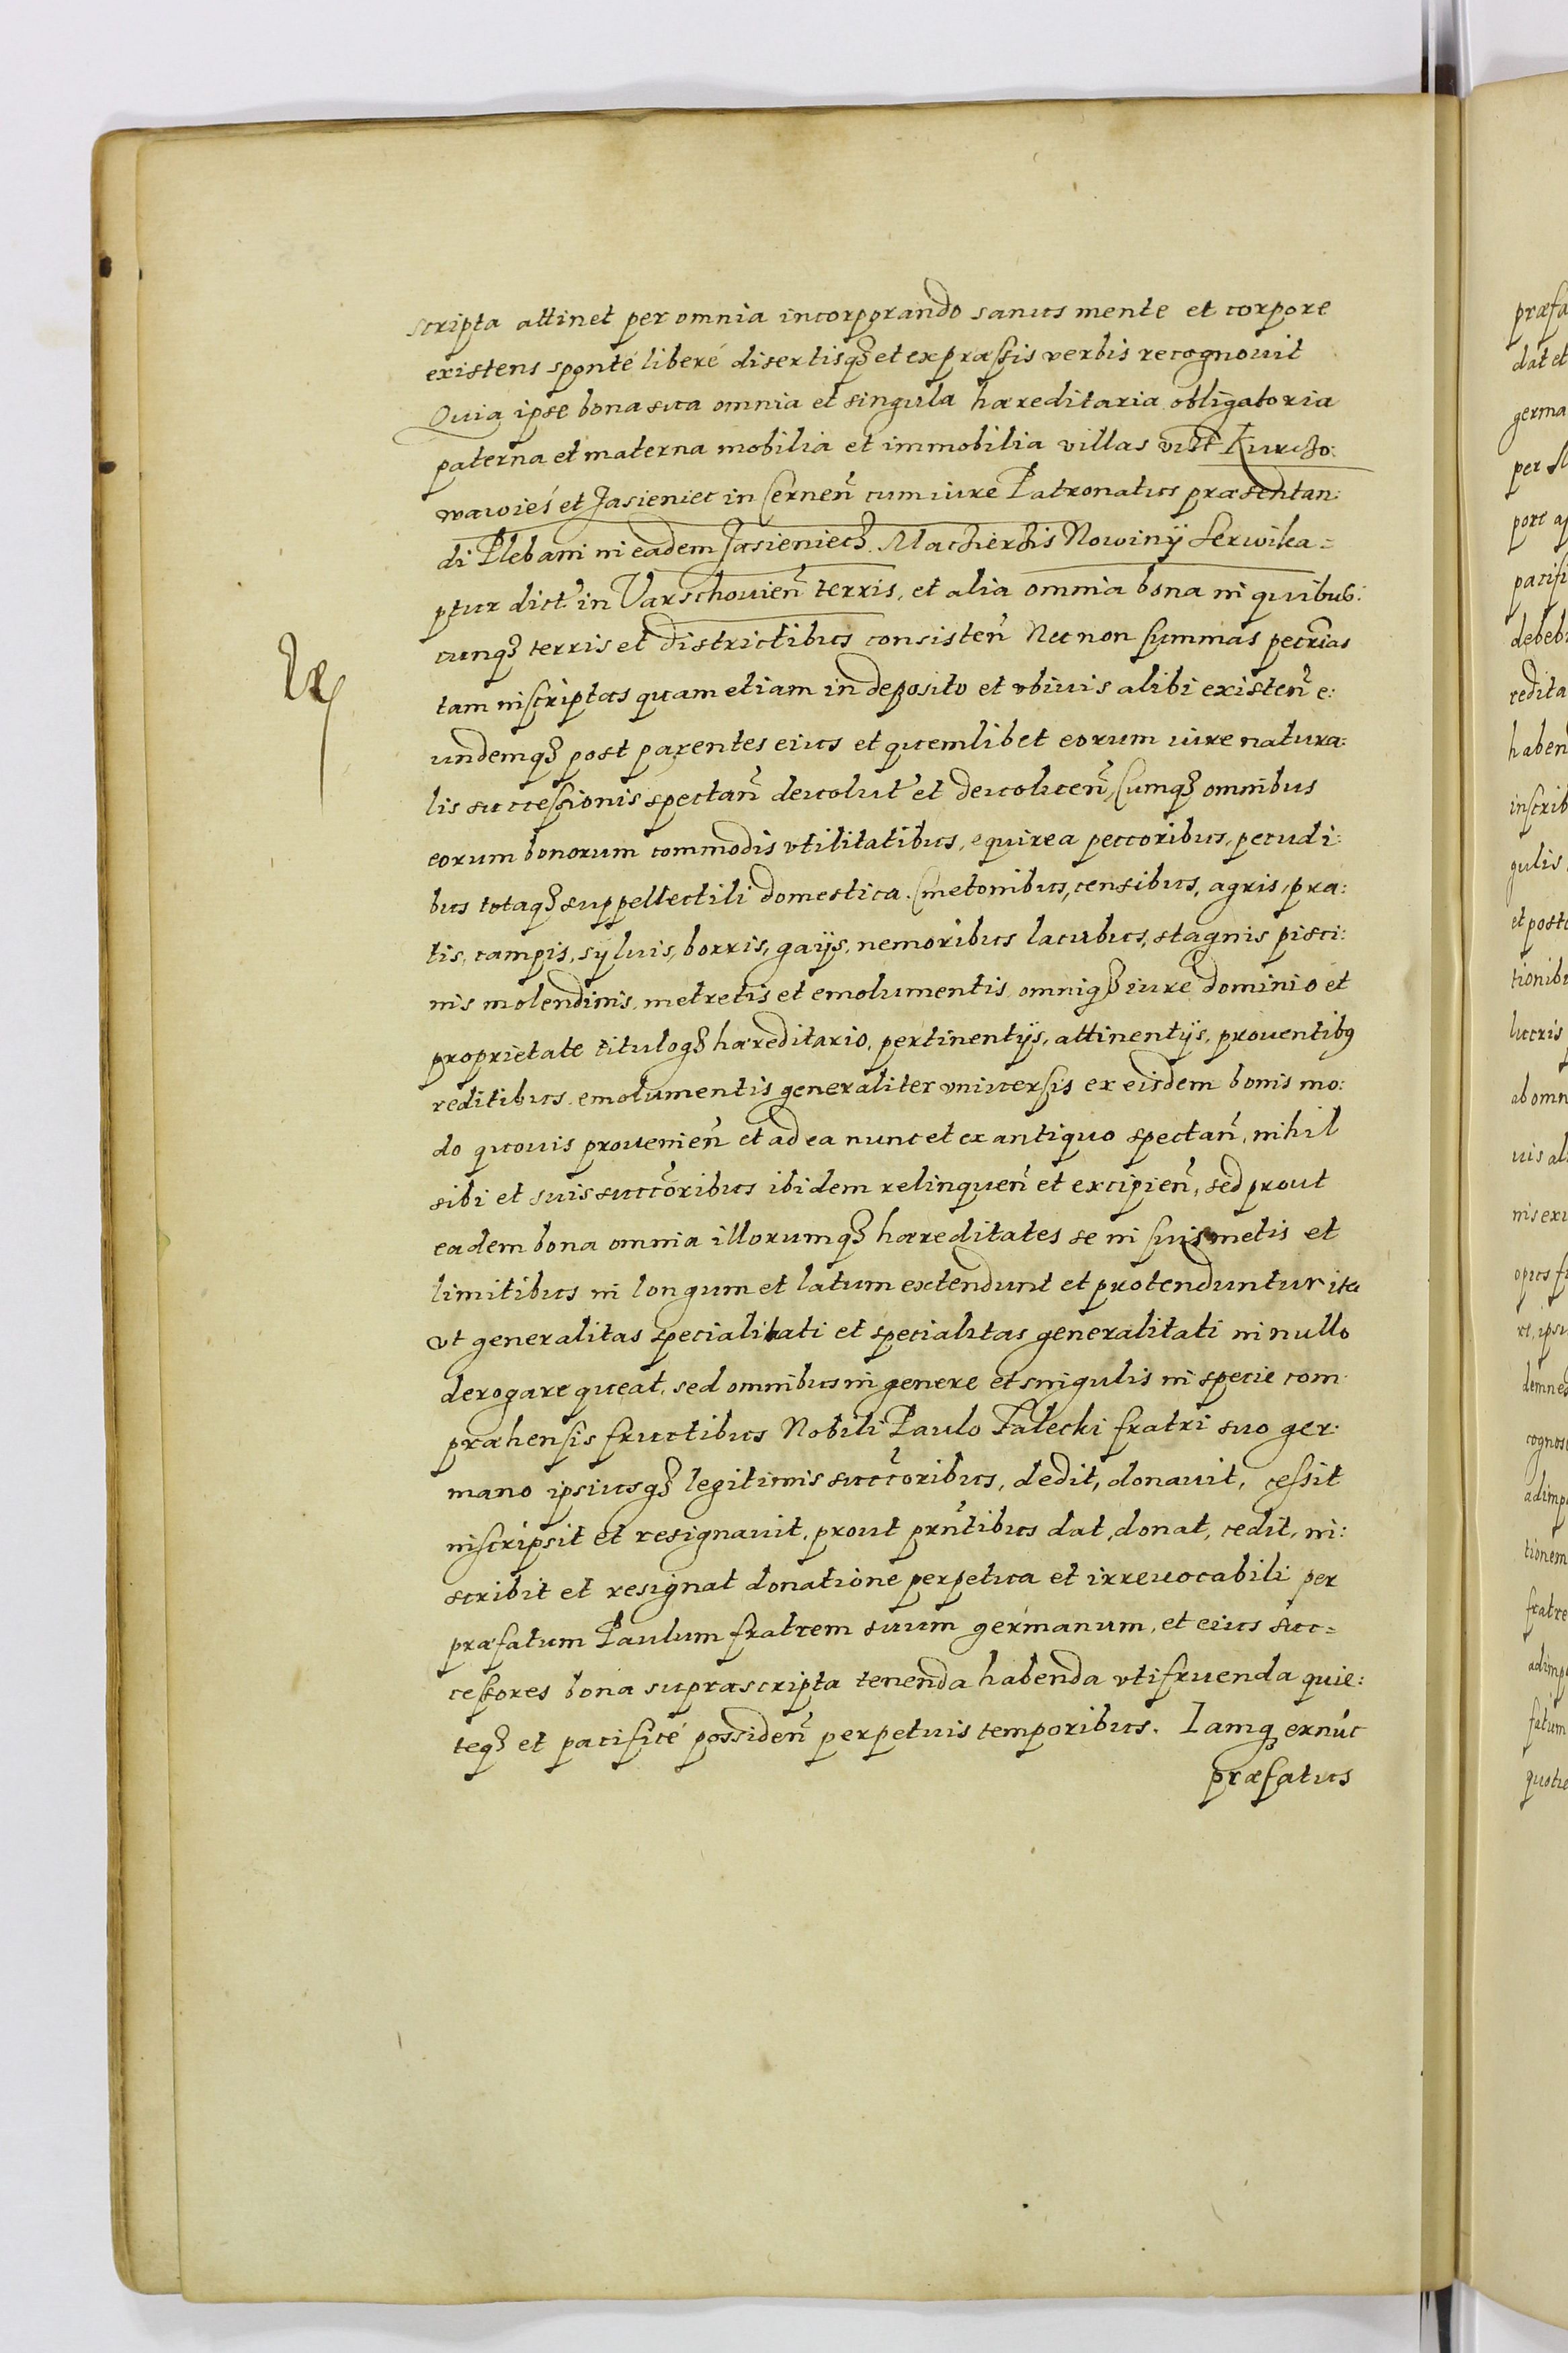 scripta attinet per omnia incorporando sanus mente et corpore
existens sponté liberé disertisqꝫ et expræssis verbis recognouit
Quia ipse bona sua omnia et singula hæreditaria obligatoria
paterna et materna mobilia et immobilia villas vidt Kurczo:
wawieś et Jasieniec in Cernen̄ cum iure Patronatus præsentan:
di Plebani in eadem Jasieniecz. Maczierzis Nowiny Serwika=
ptur dict in Varschouien̄ terris, et alia omnia bona in quibus:
cunqꝫ terris et districtibus consisten̄ Nec non summas pecrias
tam inscriptas quam etiam in deposito et vbiuis alibi existen̄ e:
undemqꝫ post parentes eius et quemlibet eorum iure natura:
lis successionis spectan̄ deuolut et deuoluen̄, Cumqꝫ omnibus
eorum bonorum commodis vtilitatibus, equirea peccoribus, pecudi:
bus totaqꝫ suppellectili domestica. Cmetonibus, censibus, agris, pra:
tis, campis, syluis, borris, gaijs, nemoribus lacubus, stagnis pisci:
nis molendinis, metretis et emolumentis omniqꝫ iure dominio et
proprietate tituloqꝫ hæreditario, pertinentijs, attinentijs, prouentibꝰ
reditibus emolumentis generaliter vniuersis ex eisdem bonis mo:
do quouis prouenien̄ et ad ea nunc et ex antiquo spectan̄, nihil
sibi et suis succoribus ibidem relinquen̄ et excipien̄, sed prout
eadem bona omnia illorumqꝫ hæreditates se in suis metis et
limitibus in longum et latum extendunt et protenduntur ita
vt generalitas specialitati et specialitas generalitati in nullo
derogare queat, sed omnibus in genere et singulis in specie com:
præhensis fructibus Nobili Paulo Falecki fratri suo ger:
mano ipsiusqꝫ legitimis succoribus, dedit, donauit, cessit
inscripsit et resignauit, prout prntibus dat, donat, cedit, in:
scribit et resignat donatione perpetua et irreuocabili per
præfatum Paulum fratrem suum germanum, et eius suc=
cessores bona suprascripta tenenda habenda vtifruenda quie:
teqꝫ et pacificé possiden̄ perpetuis temporibus. Iamq exnúc
præfatus